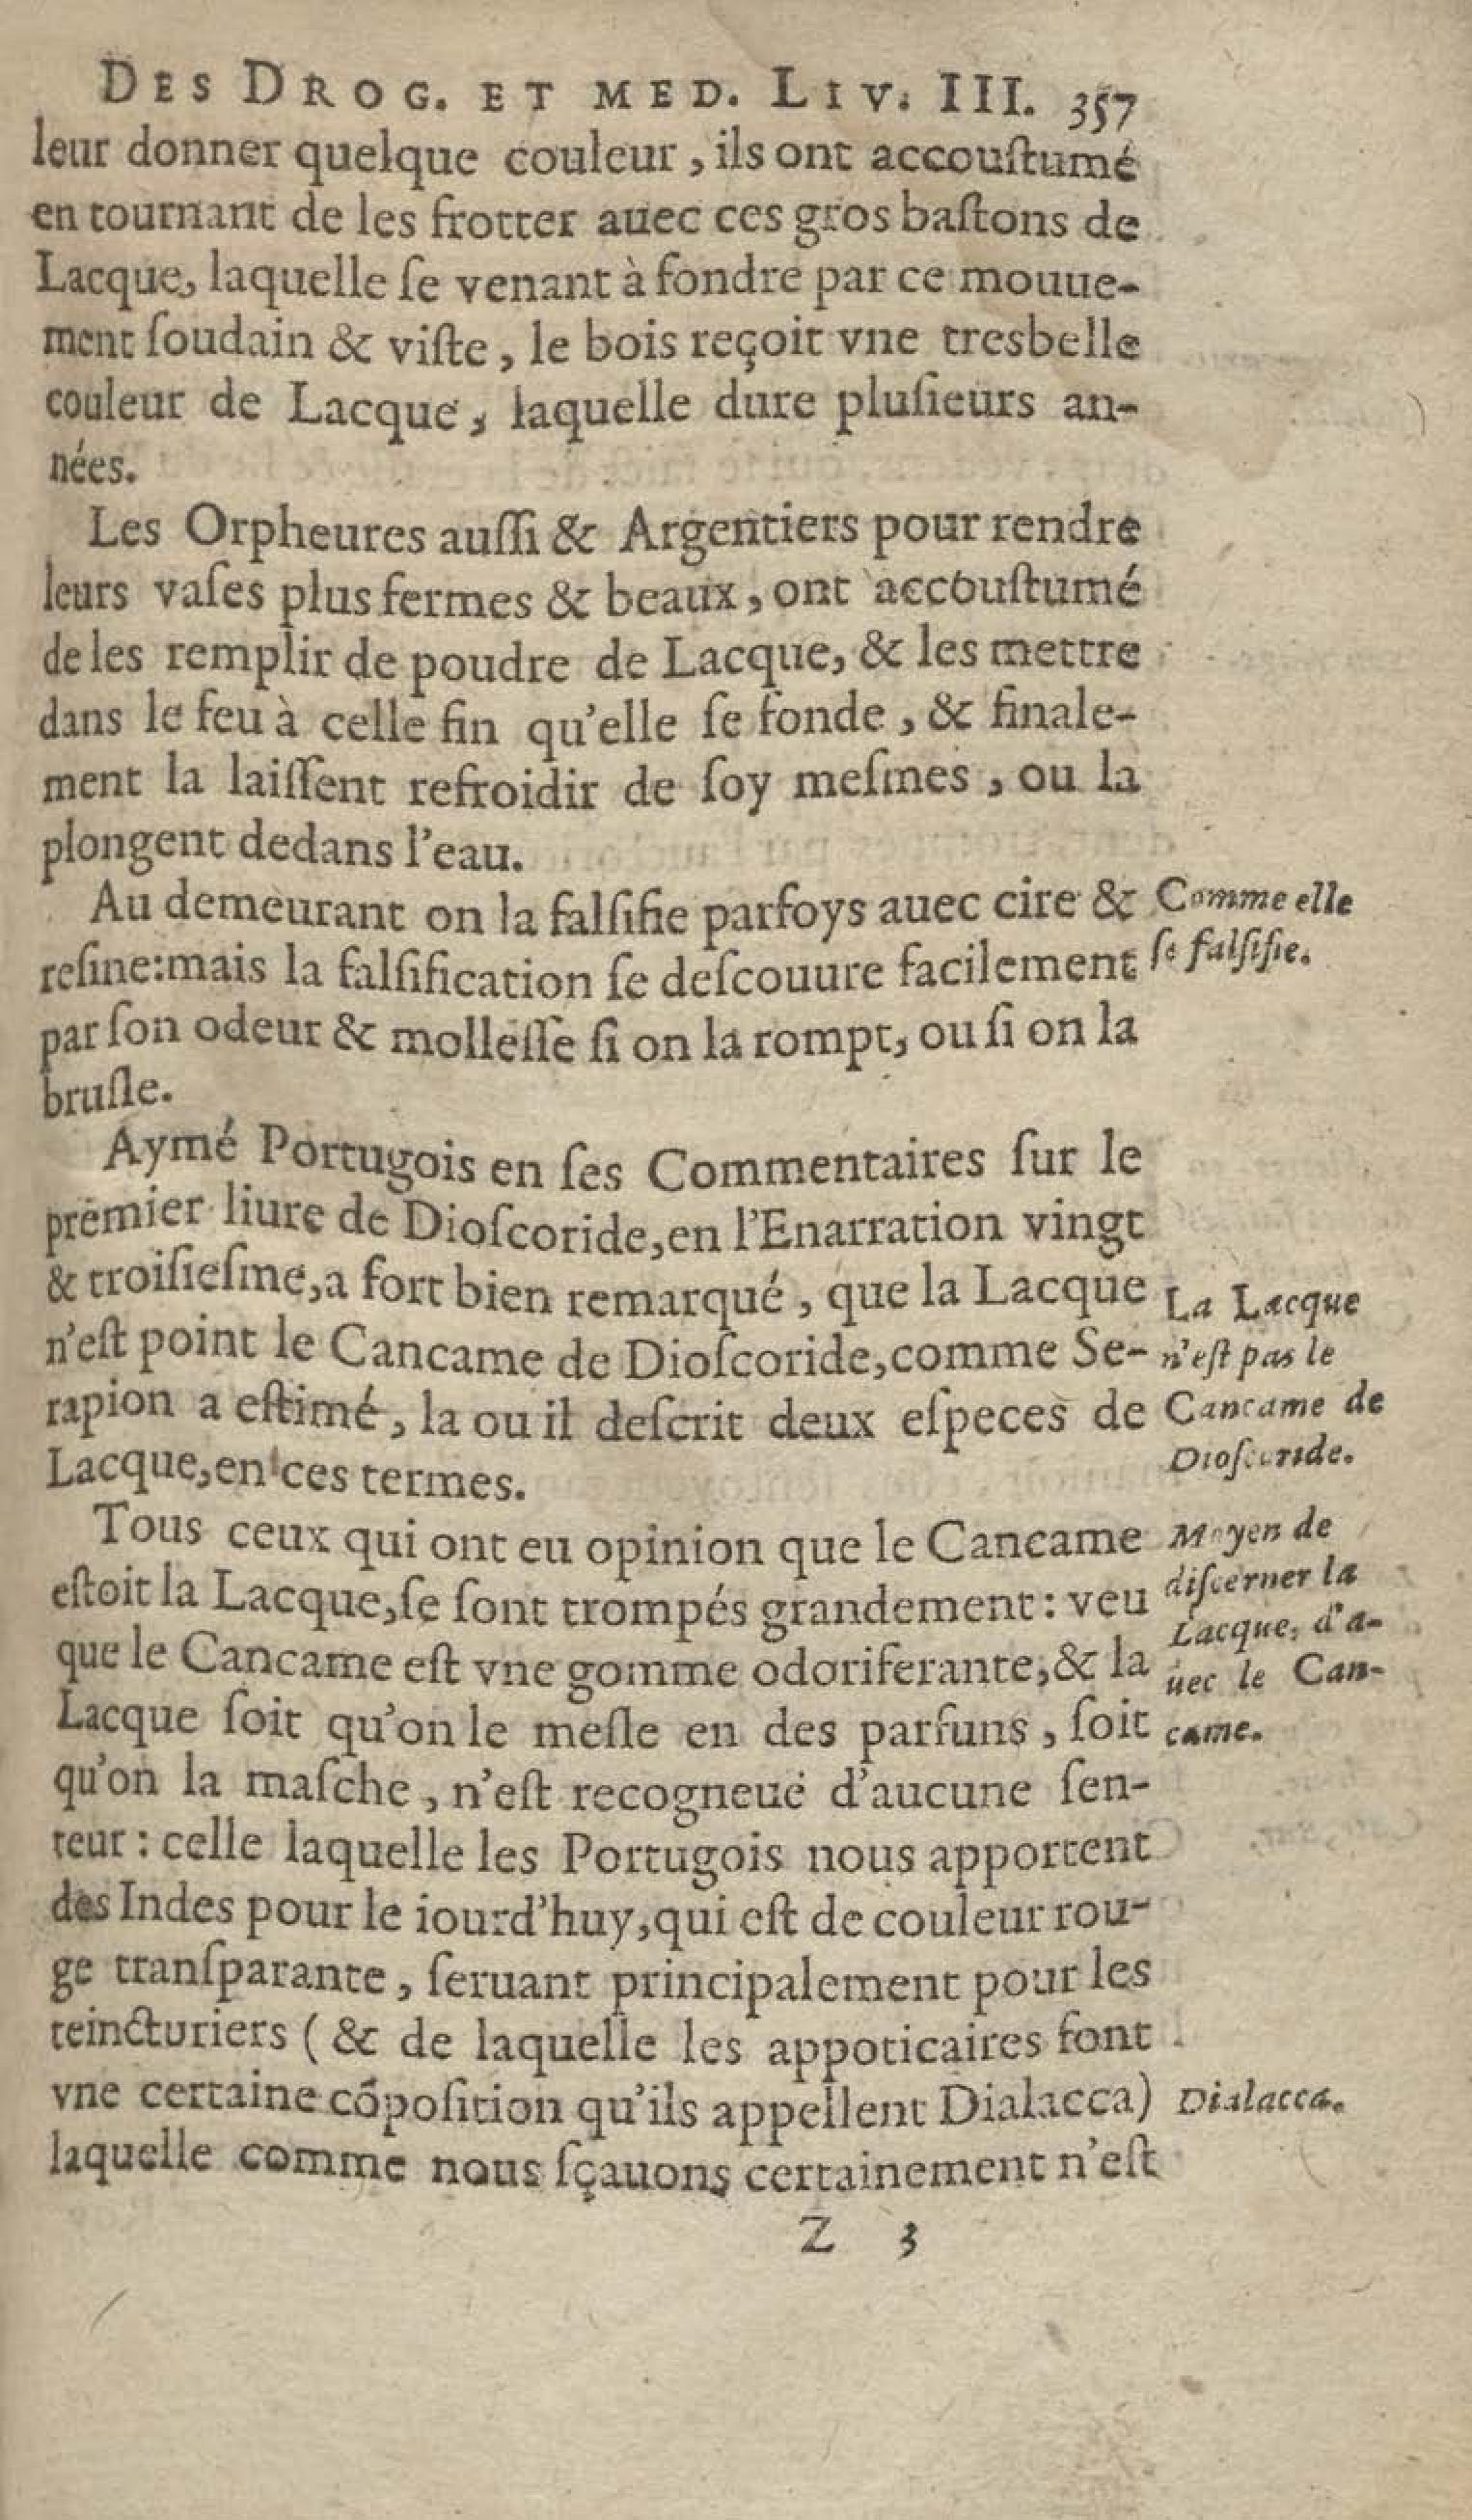 DES DROG. ET MED. LIV. III. 357
leur donner quelque couleur, ils ont accouſtumé
en tournant de les frotter auec ces gros baſtons de
Lacque, laquelle ſe venant à fondre par ce mouue-
ment ſoudain & viſte, le bois reçoit vne tresbelle
couleur de Lacque, laquelle dure pluſieurs an-
nées.
Les Orpheures auſſi & Argentiers pour rendre
leurs vaſes plus fermes & beaux, ont accouſtumé
de les remplir de poudre de Lacque, & les mettre
dans le feu à celle fin qu'elle ſe fonde, & finale-
ment la laiſſent refroidir de ſoy meſmes, ou la
plongent dedans l'eau.
Au demeurant on la falſifie parfoys auec cire &
reſine: mais la falſification ſe deſcouure facilement
par ſon odeur & molleſſe ſi on la rompt, ou ſi on la
bruſle.
Comme elle
ſe falſifie.
Aymé Portugois en ſes Commentaires ſur le
premier liure de Dioſcoride, en l'Enarration vingt
& troiſieſme, a fort bien remarqué, que la Lacque
n'eſt point le Cancame de Dioſcoride, comme Se-
rapion a eſtimé, la ou il deſcrit deux eſpeces de
Lacque, en ces termes.
La Lacque
n'eſt pas le
Cancame de
Dioſcoride.
Tous ceux qui ont eu opinion que le Cancame
eſtoit la Lacque, ſe ſont trompés grandement: veu
que le Cancame eſt vne gomme odoriferante, & la
Lacque ſoit qu'on le meſle en des parfuns, ſoit
qu'on la maſche, n'eſt recogneue d'aucune ſen-
teur: celle laquelle les Portugois nous apportent
des Indes pour le iourd'huy, qui eſt de couleur rou-
ge tranſparante, ſeruant principalement pour les
teincturiers (& de laquelle les appoticaires font
vne certaine cõpoſition qu'ils appellent Dialacca)
laquelle comme nous ſçauons certainement n'eſt
Moyen de
diſcerner la
Lacque, d'a-
uec le Can-
came.
Dialacca.
Z 3